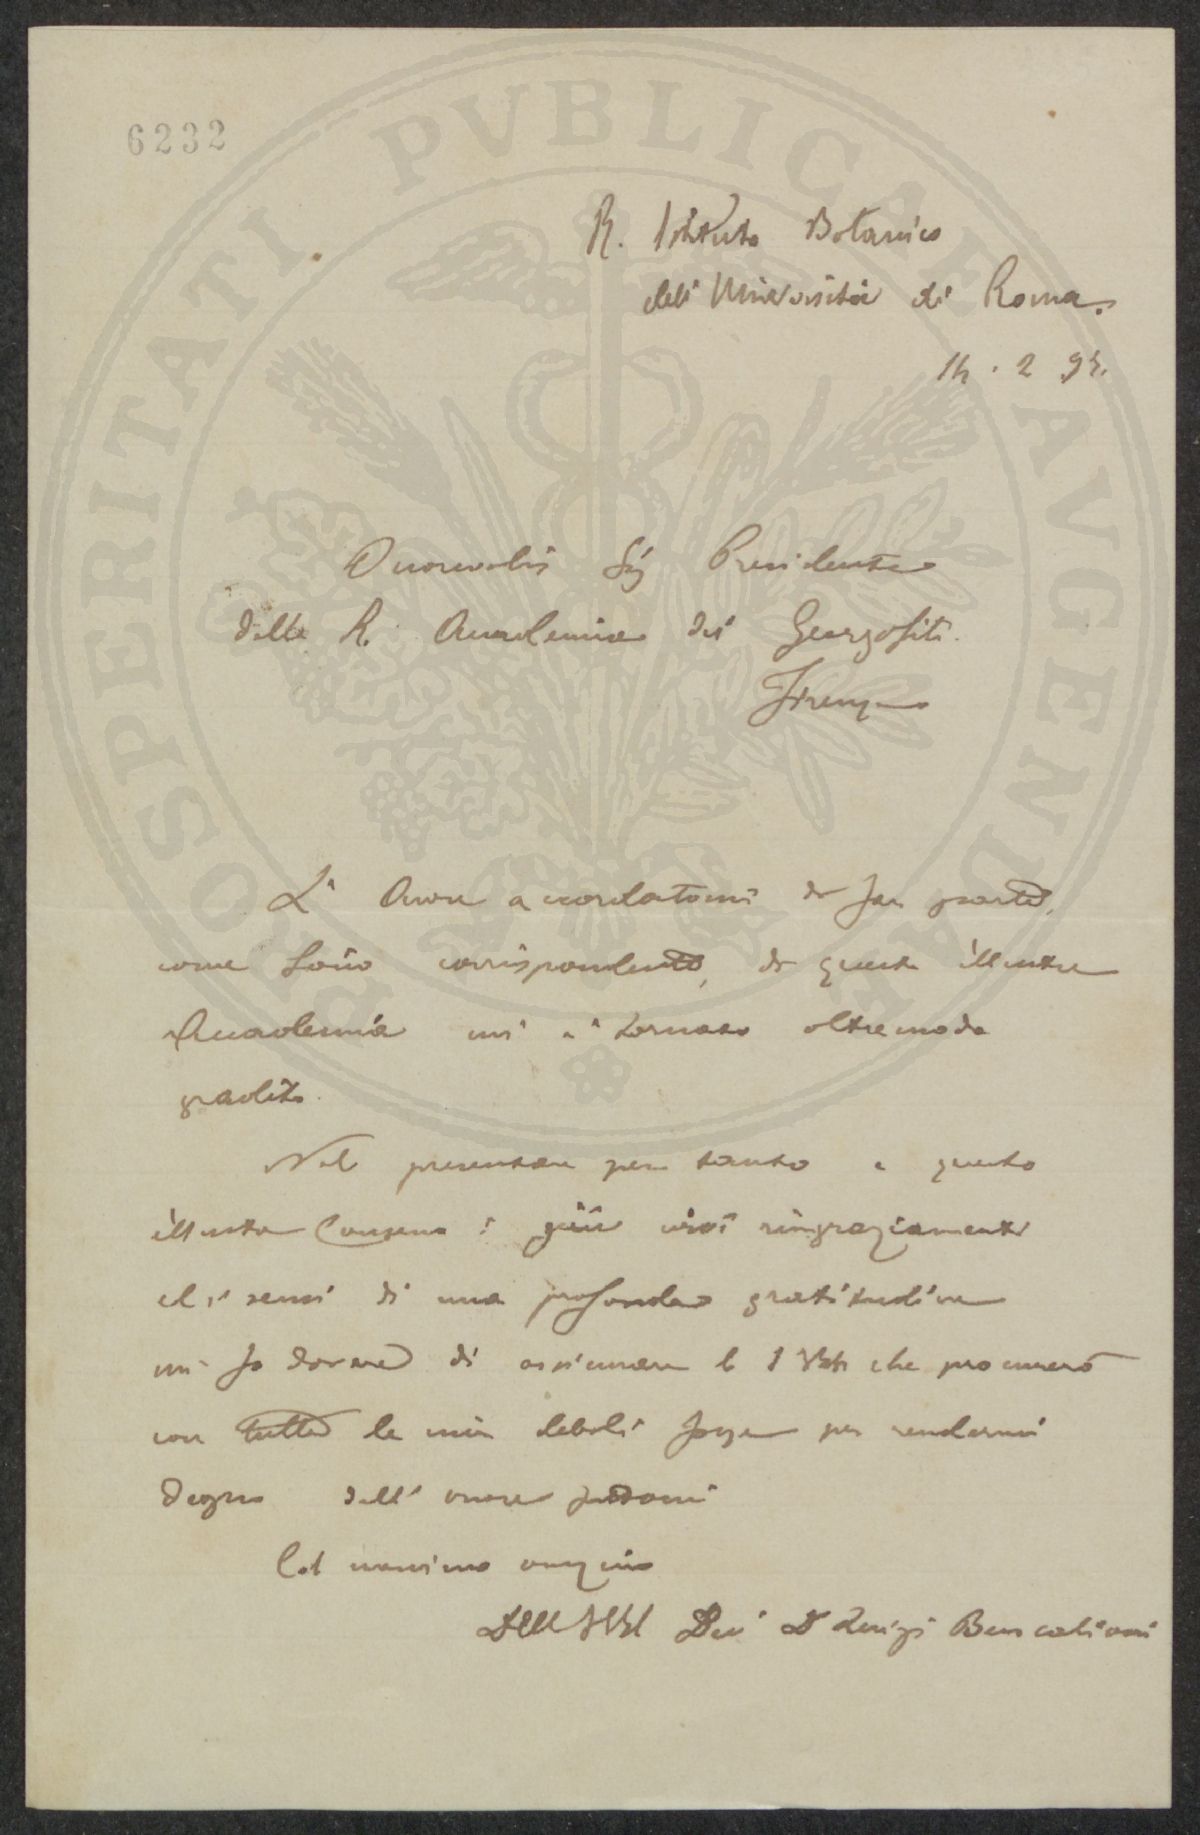 PROSPERITATI PVBLICAE AVGENDAE
6232
R. Istituto Botanico
dell' Università di Roma.
14 . 2 95.
Onorevolis Sig Presidente
della R. Accademia dei Georgofili.
Firenze
L' Onore accordatomi di far parte,
come Socio corrispondente, di questa illustre
Accademia mi è tornato oltremodo
gradito.
Nel presentare per tanto a questo
illustre Consesso i più vivi ringraziamenti
ed i sensi di una profonda gratitudine
mi fo dovere di assicurare la che procurerò
con tutte le mie deboli forze per rendermi
degno dell' onore fattomi
Col massimo ossequio
Dell Dev D Luigi Buscalioni